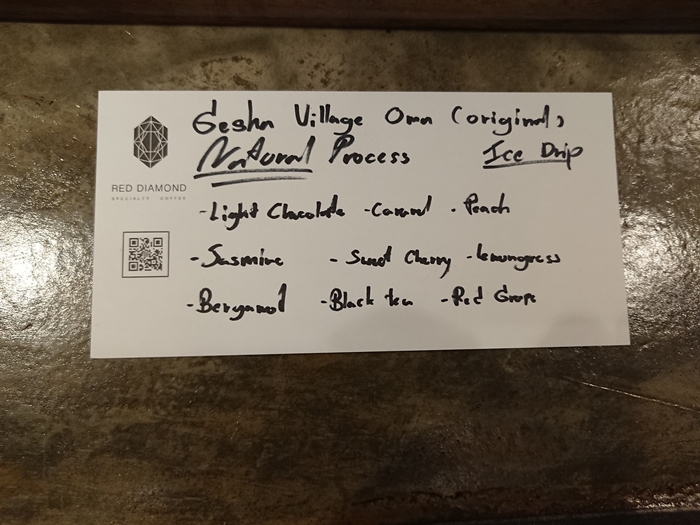 Gesha Village Oma (original)
Natural Process Ice Drip
RED DIAMOND
SPECIALTY COFFEE
-Light Chocolate -Caramel -Peach
-Jasmine -Sweet Cherry -lemongrass
-Bergamot -Black tea -Red Grape